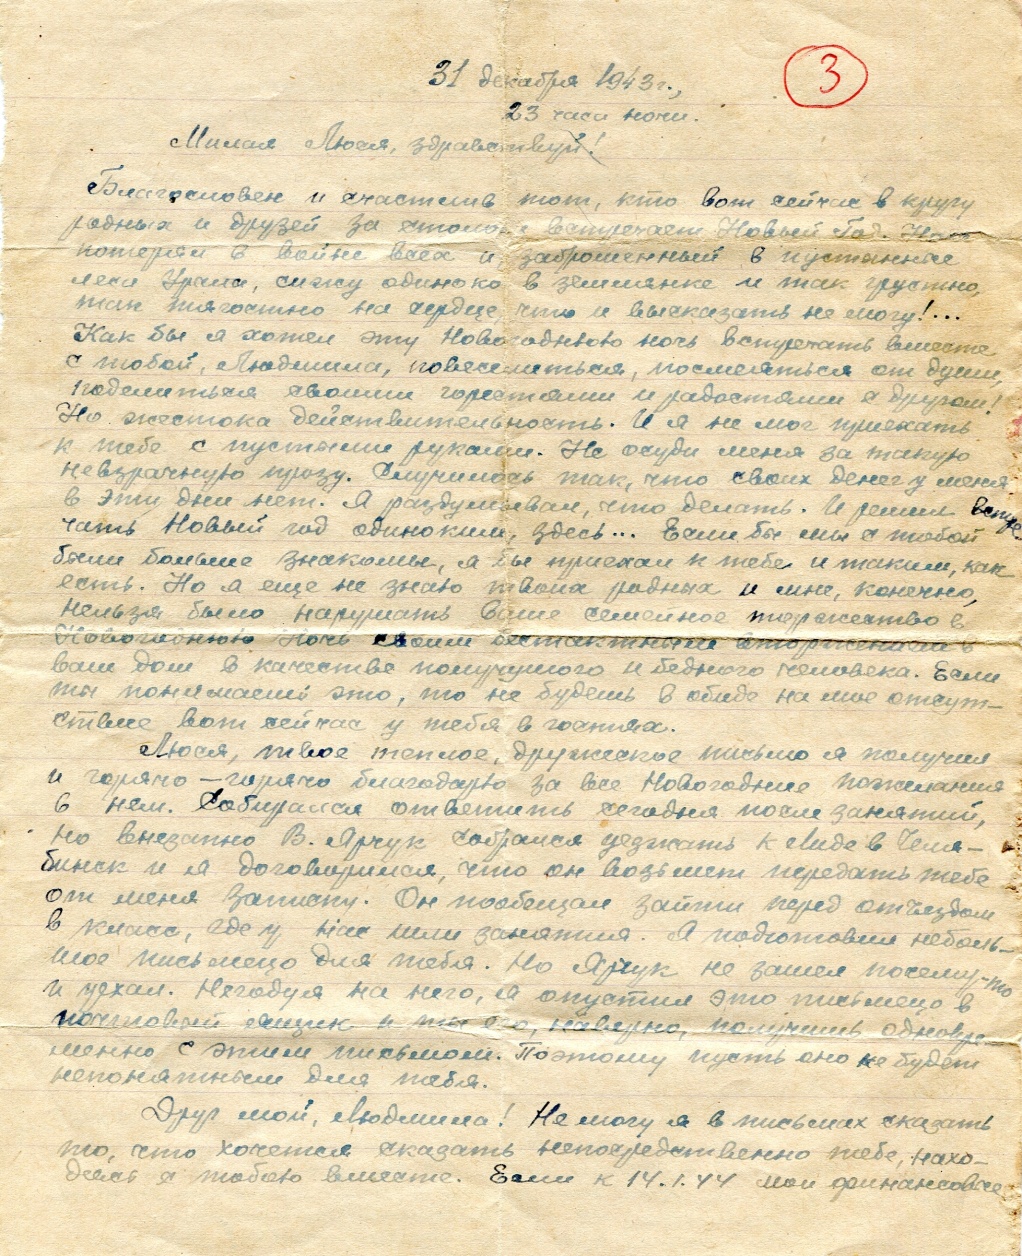 3
31 декабря 1943 г.,
23 часа ночи.
Милая Люся, здравствуй!
Благословен и счастлив тот, кто вот сейчас в кругу
родных и друзей за столом встречает Новый Год.
потерял в войне всех и, заброшенный в пустынные
леса Урала, сижу одиноко в землянке и так грустно,
так тягостно на сердце, что и высказать не могу!...
Как бы я хотел эту Новогоднюю ночь встречать вместе
с тобой, Людмила, повеселиться, посмеяться от души,
поделиться своими горестями и радостями с другом!
Но жестока действительность. И я не мог приехать
к тебе с пустыми руками. Не осуди меня за такую
невзрачную прозу. Случилось так, что своих денег у меня
в эти дни нет. Я раздумывал, что делать. И решил встре
чать Новый год одиноким, здесь... Если бы мы с тобой
были больше знакомы, я бы приехал к тебе и таким, как
есть. Но я еще не знаю твоих родных и мне, конечно,
нельзя было нарушать Ваше семейное торжество в
Новогоднюю ночь своим бестактным вторжением в
ваш дом в качестве полунищего и бедного человека. Если
ты понимаешь это, то не будешь в обиде на мое отсут-
ствие вот сейчас у тебя в гостях.
Люся, твое теплое, дружеское письмо я получил
и горячо-горячо благодарю за все Новогодние пожелания
в нем. Собирался ответить сегодня после занятий,
но внезапно В. Ярчук собрался уезжать к Лиде в Челя-
бинск и я договорился, что он возьмет передать тебе
от меня записку. Он пообещал зайти перед отъездом
в класс, где у нас шли занятия. Я подготовил неболь-
шое письмецо для тебя. Но Ярчук не зашел почему-то
и уехал. Негодуя на него, я опустил это письмецо в
почтовый ящик и ты его, наверно, получишь одновре-
менно с этим письмом. Поэтому пусть оно не будет
непонятным для тебя.
Друг мой, Людмила! Не могу я в письмах сказать
то, что хочется сказать непосредственно тебе, нахо-
дясь с тобою вместе. Если к 14.1.44 мои финансовые